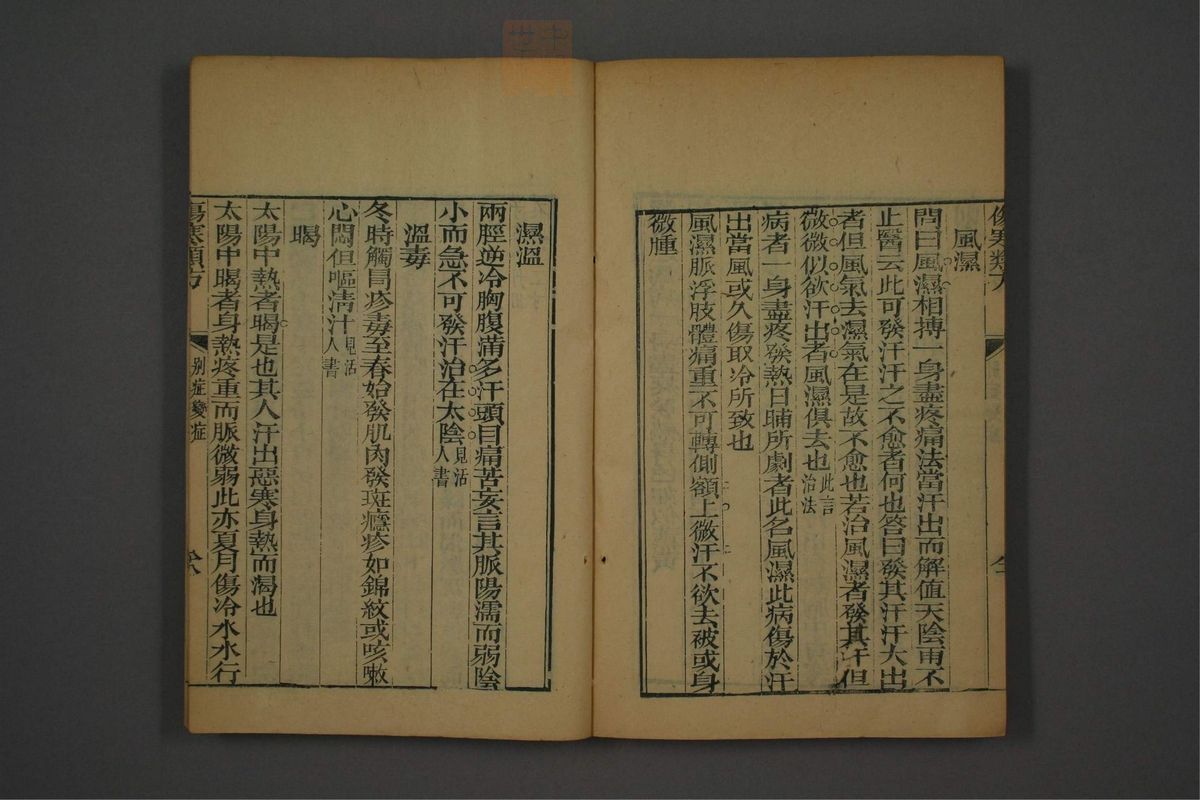 傷寒類方
風濕
問曰風濕相搏一身盡疼痛法當汗出而解值天陰雨不
止醫云此可發汗汗之不愈者何也答曰發其汗汗大出
者但風氣去濕氣在是故不愈也若治風濕者發其汗但
微微似欲汗出者風濕俱去也此言治法
病者一身盡疼發熱日晡所劇者此名風濕此病傷於汗
出當風或久傷取冷所致也
風濕脈浮肢體痛重不可轉側額上微汗不欲去被或身
微腫
濕溫
兩脛逆冷胸腹滿多汗頭目痛苦妄言其脈陽濡而弱陰
小而急不可發汗治在太陰見活人書
溫毒
冬時觸冒疹毒至春始發肌肉發斑癮疹如錦紋或咳嗽
心悶但嘔淸汁見活人書
暍
太陽中熱者暍是也其人汗出惡寒身熱而渴也
太陽中暍者身熱疼重而脈微弱此亦夏月傷冷水水行
傷寒類方
別症變症
六